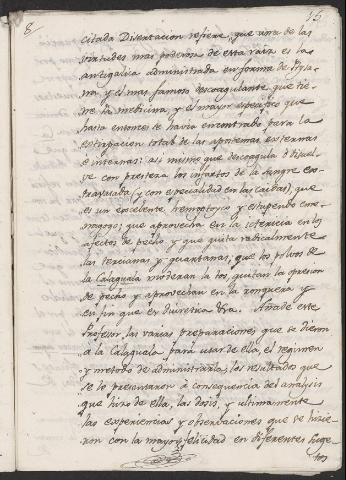 8
15
citada Disertacion refiere, que una de las
virtudes mas poderosas de esta raiz es la
antigalica administrada en forma de Ptysa-
na, y el mas famoso descoagulante que tie-
ne la medicina, y el mayor especifico que
hasta entonces se havia encontrado para la
extirpacion total de las apostemas externas
e internas: asi mismo que descoagula i disuel-
ve con presteza los infartos de la sangre ex-
travasada (y con especialidad en las caidas), que
es un excelente hemoptoyco y estupendo eme-
nagogo; que aprovecha en la ictericia en los
afectos de pecho y que quita radicalmente
las tercianas y quartanas; que los polvos de
la Calaguala moderan la tos, quitan la opresion
de pecho y aprovechan en la ronquera y
en fin que es diuretica &ra. Añade este
Profesor, las varias preparaciones que se dieron
a la Calaguela para usar de ella, el regimen
y metodo de administrarla, los resultados que
se lo presentaron à consequencia del analisis
que hizo de ella, las dosis, y ultimamente
las experiencias y observaciones que se hizie-
ron con la mayor felicidad en diferentes suge-
tos